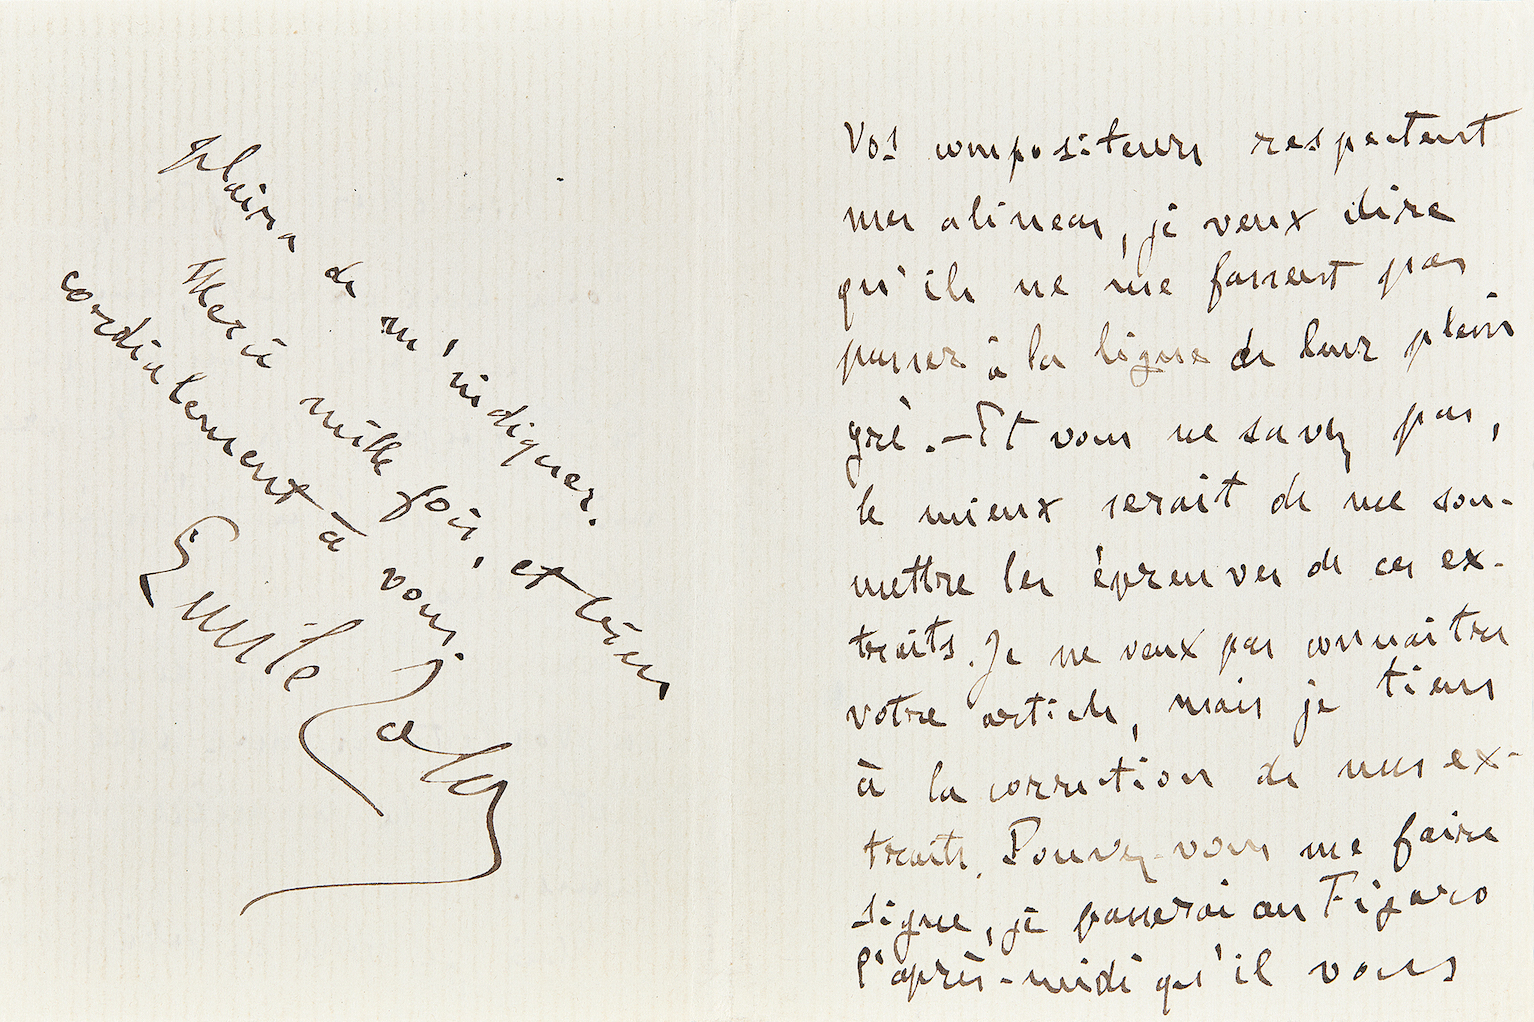 Vos compositeurs respectent
mes alineas, je veux dire
qu'ils ne me fassent pas
passer à la ligne de leur plein
gré. — Et vous ne savez pas,
le mieux serait de me sou-
mettre les épreuves de ces ex-
traits. Je ne veux pas connaitre
votre article, mais je tiens
à la correction de mes ex-
traits. Pouvez-vous me faire
signe, je passerai au Figaro
l'après-midi qu'il vous
plaira de m'indiquer.
Merci mille fois, et bien
cordialement à vous.
Emile Zola